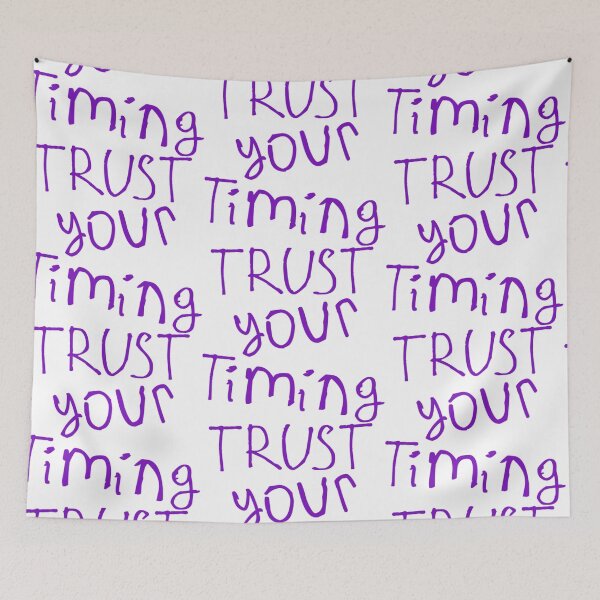 Timing
TRUST
your
Timing
TRUST
your
Timing
TRUST
your
Timing
TRUST
your
Timing
TRUST
your
Timing
TRUST
your
Timing
TRUST
your
Timing